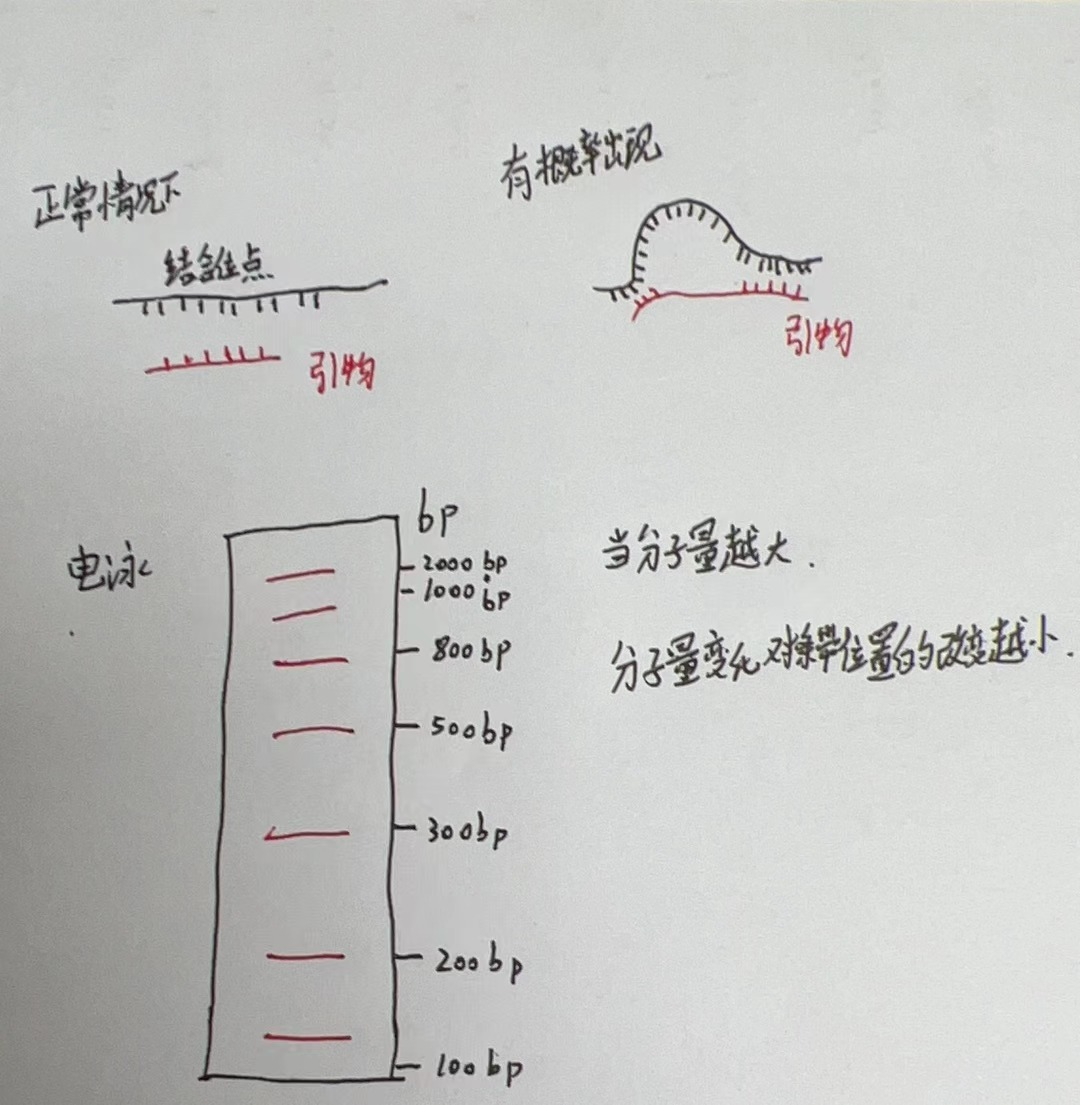 正常情况下
结合位点
引物
有概率出现
引物
电泳
bp
2000 bp
1000 bp
800 bp
500 bp
300 bp
200 bp
100 bp
当分子量越大.
分子量变化对条带位置的改变越小.